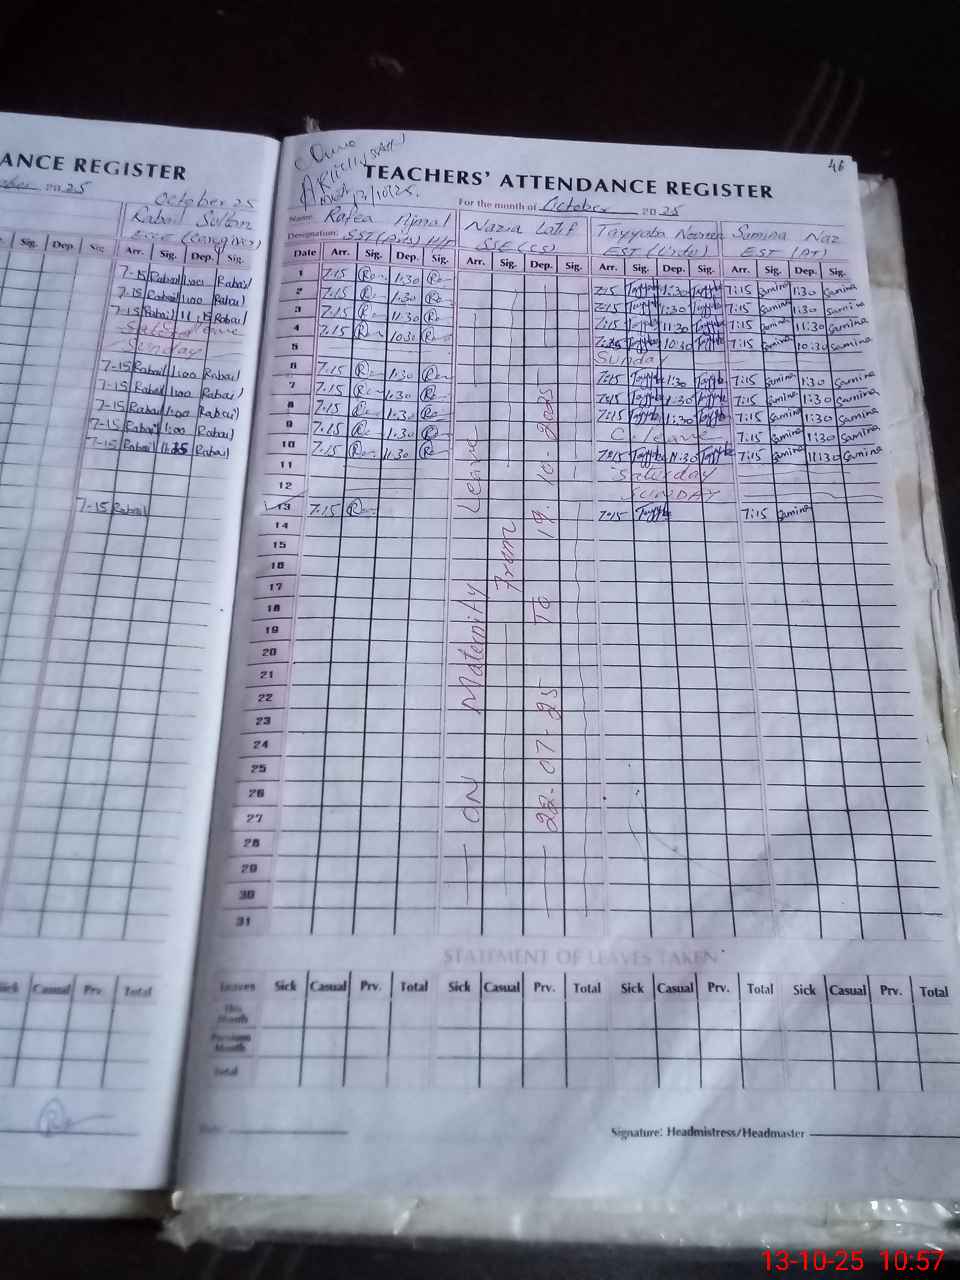 ANCE REGISTER
20 25
October 25
Rabail Sultan
ECCE (Caregiver)
Sig. Dep. Sig. Arr. Sig. Dep. Sig.
7-15 Rabail 1:00 Rabail
7-15 Rabail 1:00 Rabail
7-15 Rabail 11:15 Rabail
Sunday
7-15 Rabail 1:00 Rabail
7-15 Rabail 1:00 Rabail
7-15 Rabail 1:00 Rabail
7-15 Rabail 1:00 Rabail
7-15 Rabail Rabail
7-15 Rabail
Sick Casual Prv. Total
46
TEACHERS' ATTENDANCE REGISTER
For the month of October 20 25
Name: Rafea Ajmal Nazia Latif Tayyaba Noreen Samina Naz
Designation: SSE (CS) EST (Urdu) EST (AT)
Date Arr. Sig. Dep. Sig. Arr. Sig. Dep. Sig. Arr. Sig. Dep. Sig. Arr. Sig. Dep. Sig.
1 7:15 1:30 7:15 1:30 7:15 Samina 1:30 Samina
2 7:15 1:30 7:15 1:30 7:15 Samina 1:30 Samina
3 7:15 11:30 7:15 11:30 7:15 Samina 11:30 Samina
4 7:15 10:30 7:15 10:30 7:15 Samina 10:30 Samina
5 Sunday
6 7:15 1:30 7:15 1:30 7:15 Samina 1:30 Samina
7 7:15 1:30 7:15 1:30 7:15 Samina 1:30 Samina
8 7:15 1:30 7:15 1:30 7:15 Samina 1:30 Samina
9 7:15 1:30 C. leave 7:15 Samina 1:30 Samina
10 7:15 11:30 7:15 11:30 7:15 Samina 11:30 Samina
11 Saturday
12 SUNDAY
13 7:15 7:15 7:15 Samina
14
15
16
17
18
19
20
21
22
23
24
25
26
27
28
29
30
31
ON Maternity Leave
From
22-07-25 To 19-10-2025
STATEMENT OF LEAVES TAKEN
Leaves Sick Casual Prv. Total Sick Casual Prv. Total Sick Casual Prv. Total Sick Casual Prv. Total
This Month
Previous Month
Total
Signature: Headmistress/Headmaster
13-10-25 10:57